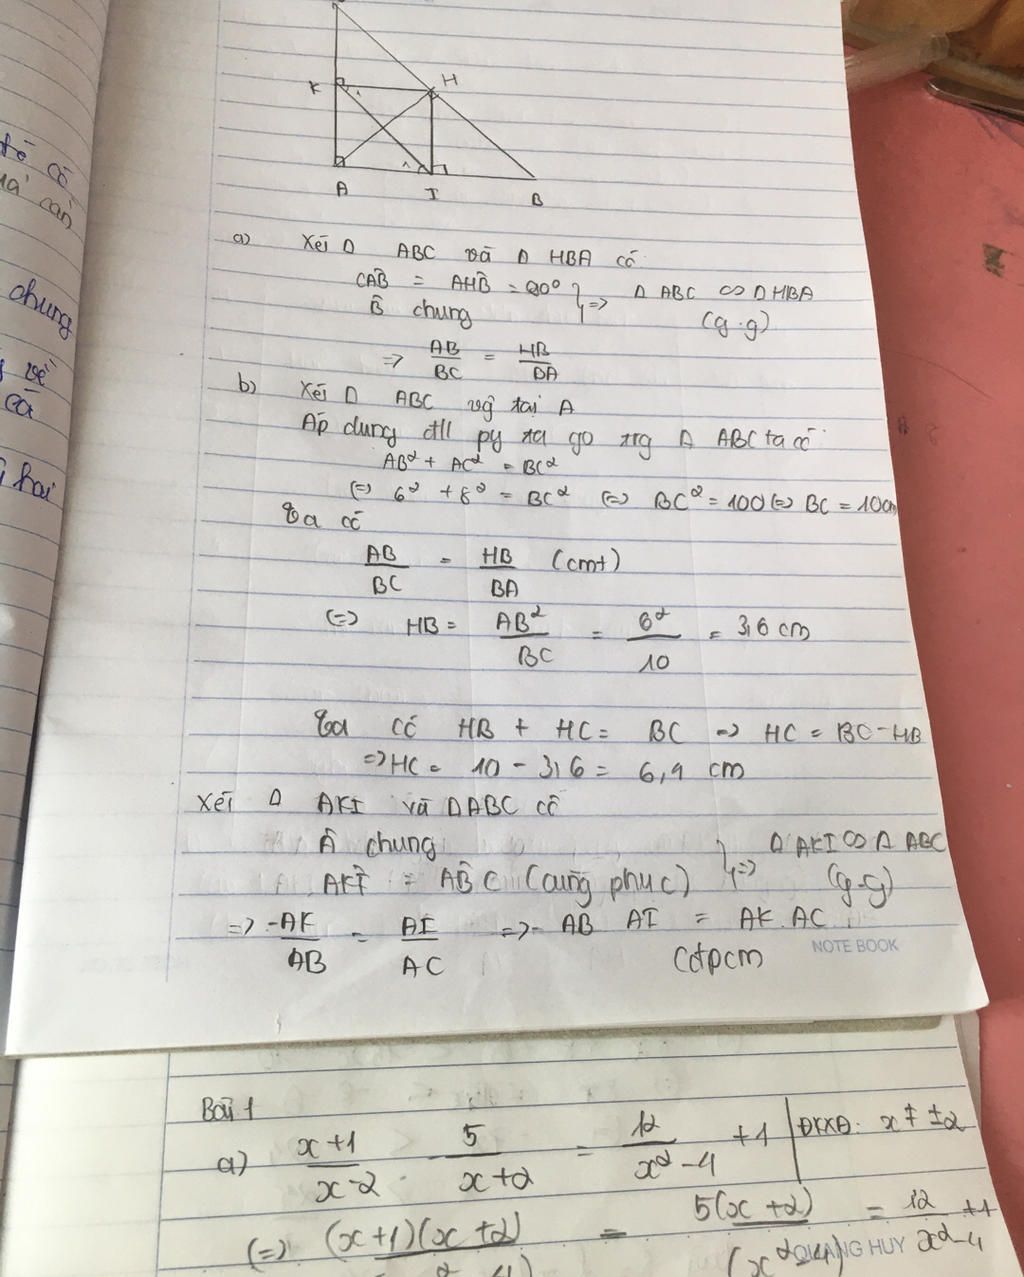 K
H
A
I
B
tô có
chung
vẽ
cã
hai
a) Xét Δ ABC và Δ HBA có
CÂB = AĤB = 90° } => Δ ABC ∽ Δ HBA
B̂ chung (g.g)
=> AB/BC = HB/BA
b) Xét Δ ABC vg tại A
Áp dụng đll py ta go trg Δ ABC ta có
AB² + AC² = BC²
(=) 6² + 8² = BC² (=) BC² = 100 (=) BC = 10cm
Ta có
AB/BC = HB/BA (cmt)
(=) HB = AB²/BC = 6²/10 = 3,6 cm
Ta có HB + HC = BC => HC = BC - HB
=> HC = 10 - 3,6 = 6,4 cm
Xét Δ AKI và Δ ABC có
 chung } => Δ AKI ∽ Δ ABC
AK̂I = AB̂C (cùng phục) (g-g)
=> AK/AB = AI/AC => AB AI = AK. AC
(đpcm
NOTE BOOK
Bài 1
a) x+1/x-2 - 5/x+2 = 12/x²-4 + 1 | ĐKXĐ: x ≠ ±2
(=) (x+1)(x+2) = 5(x+2)/(x²-4) = 12/x²-4 + 1
QUANG HUY